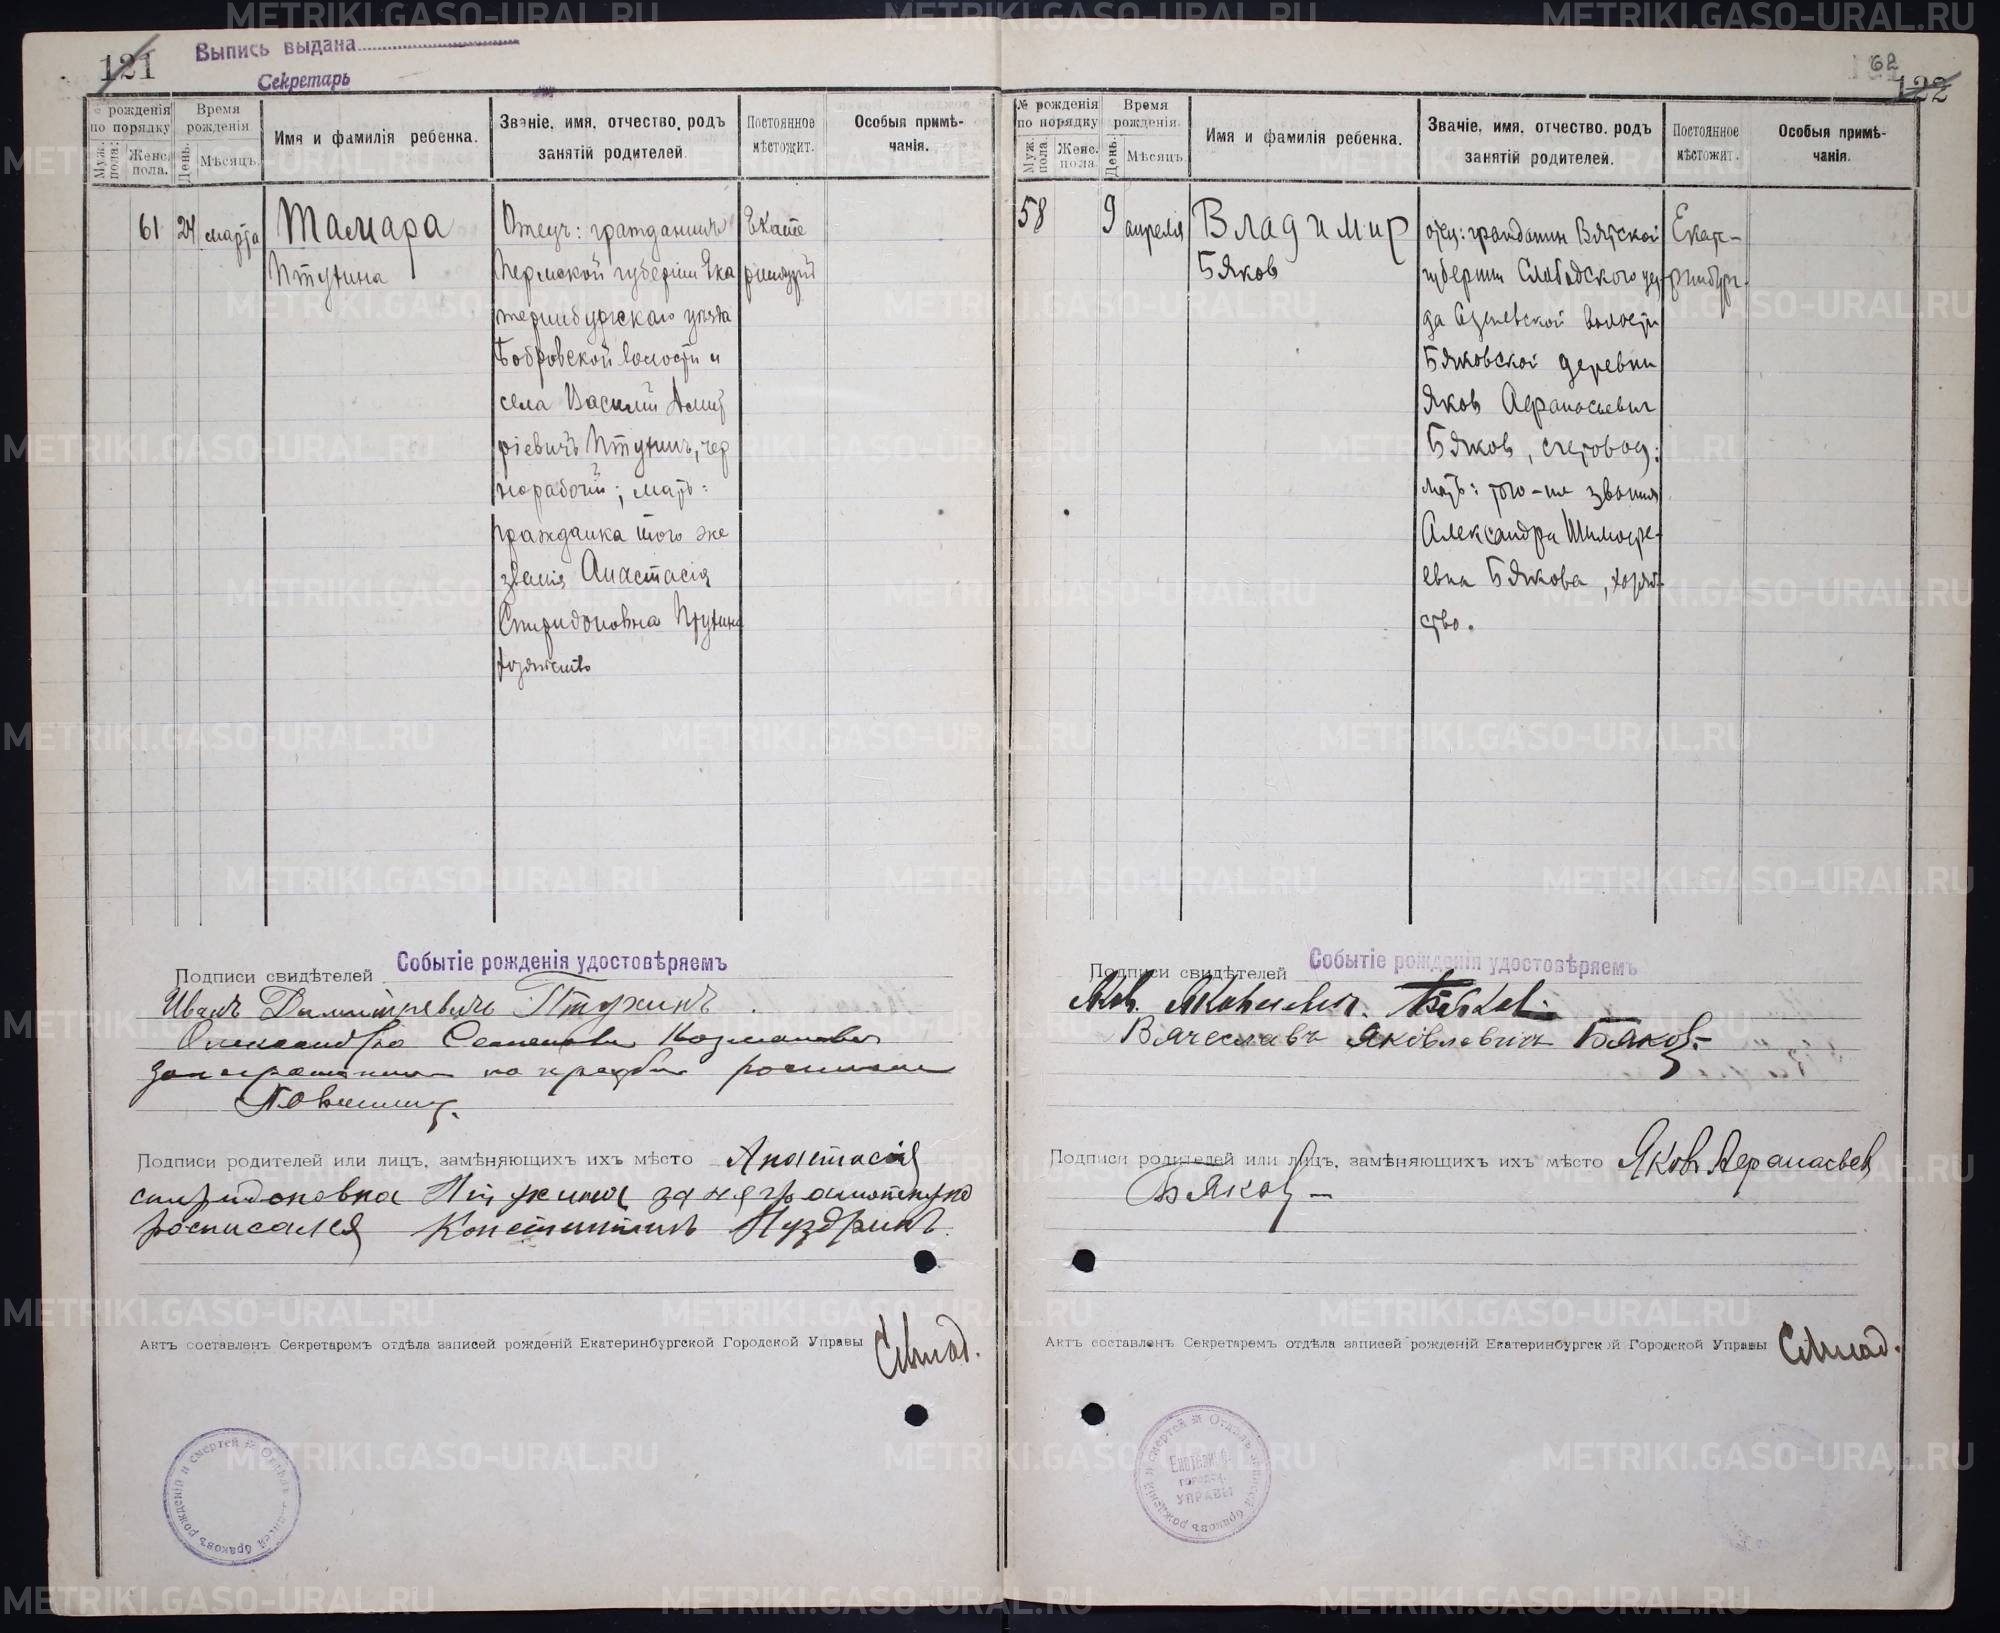 121
Выпись выдана
Секретарь
рожденія по порядку
Муж. пола.
Женс. пола.
Время рожденія
День.
Мѣсяцъ.
Имя и фамилія ребенка.
Званіе, имя, отчество, родъ занятій родителей.
Постоянное мѣстожит.
Особыя примѣ-
чанія.
61
24
марта
Тамара
Птухина
Отецъ: гражданинъ
Пермской губерніи Ека
теринбургскаго уѣзда
Бобровской волости и
села Василій Дмит
ріевичъ Птухинъ, чер
норабочій; мать:
гражданка того же
званія Анастасія
Спиридоновна Птухина
хозяйство
Екате
Подписи свидѣтелей
Событіе рожденія удостовѣряемъ
Иванъ Дьмитревичъ Птухинъ
Подписи родителей или лицъ, замѣняющихъ ихъ мѣсто Анастасія
спиридоновна Птухина за неграмотную
росписался Констинтинъ Нуздринъ.
Актъ составленъ Секретаремъ отдѣла записей рожденій Екатеринбургской Городской Управы
Отдѣлъ записей браковъ рожденій и смертей
62
122
№ рожденія по порядку
Муж. пола.
Женс. пола
Время рожденія.
День.
Мѣсяцъ.
Имя и фамилія ребенка.
Званіе, имя, отчество, родъ занятій родителей.
Постоянное мѣстожит.
Особыя примѣ-
чанія.
58
9
апреля
Владимир
Бяков
отец: гражданин Вятской
губернии Слободского уез-
да
волости
Бяковской деревни
Яков Афанасьевич
Бяков, счетовод;
мать: того-же звания
Александра Тимофе-
евна Бякова, хозяй-
ство.
Екате-
ринбург.
Подписи свидѣтелей
Событіе рожденія удостовѣряемъ
Вячеславъ Яковлевичъ Бяков
Подписи родителей или лицъ, замѣняющихъ ихъ мѣсто Яков Афанасьев
Бяков
Актъ составленъ Секретаремъ отдѣла записей рожденій Екатеринбургской Городской Управы
Отдѣлъ записей браковъ рожденій и смертей
Екатеринб.
городск.
УПРАВЫ
METRIKI.GASO-URAL.RU